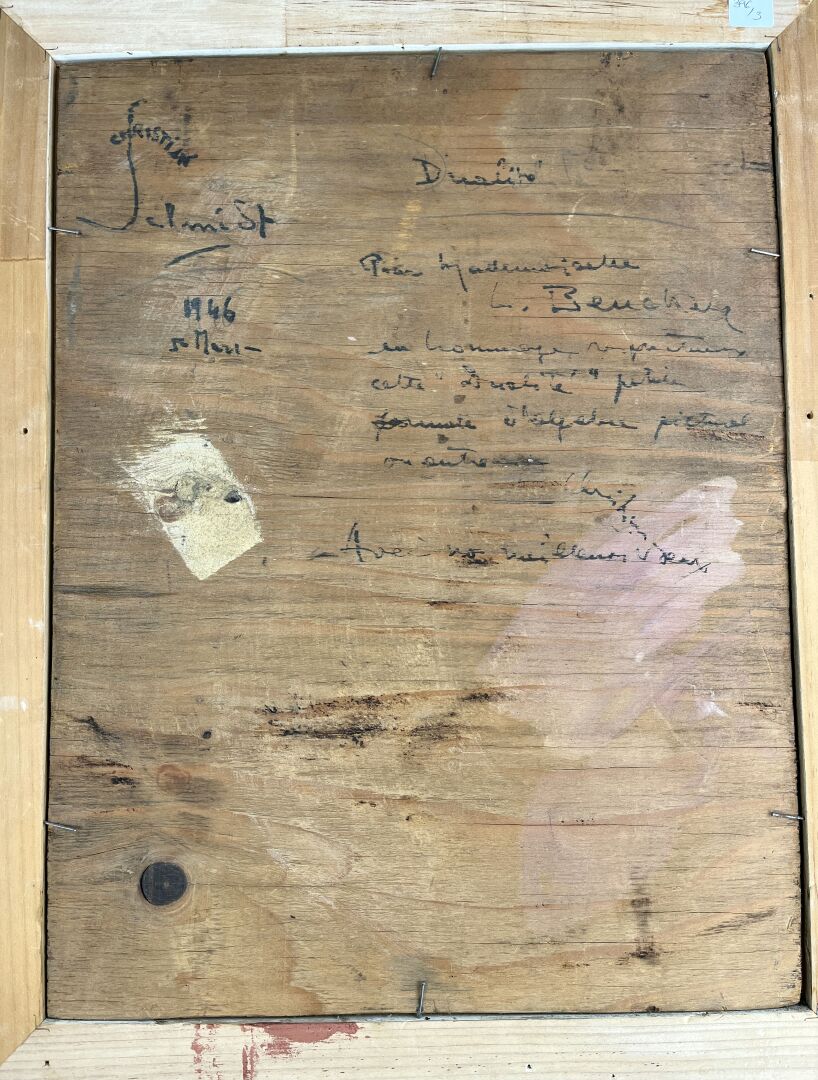 396/3
CHRISTIAN
Schmidt
1946
5 Mars -
Dualité
Pour Mademoiselle
L.
en hommage respectueux
cette "Dualité" petite
formule d'algèbre pictural
ou
Christian
- Avec nos meilleurs vœux